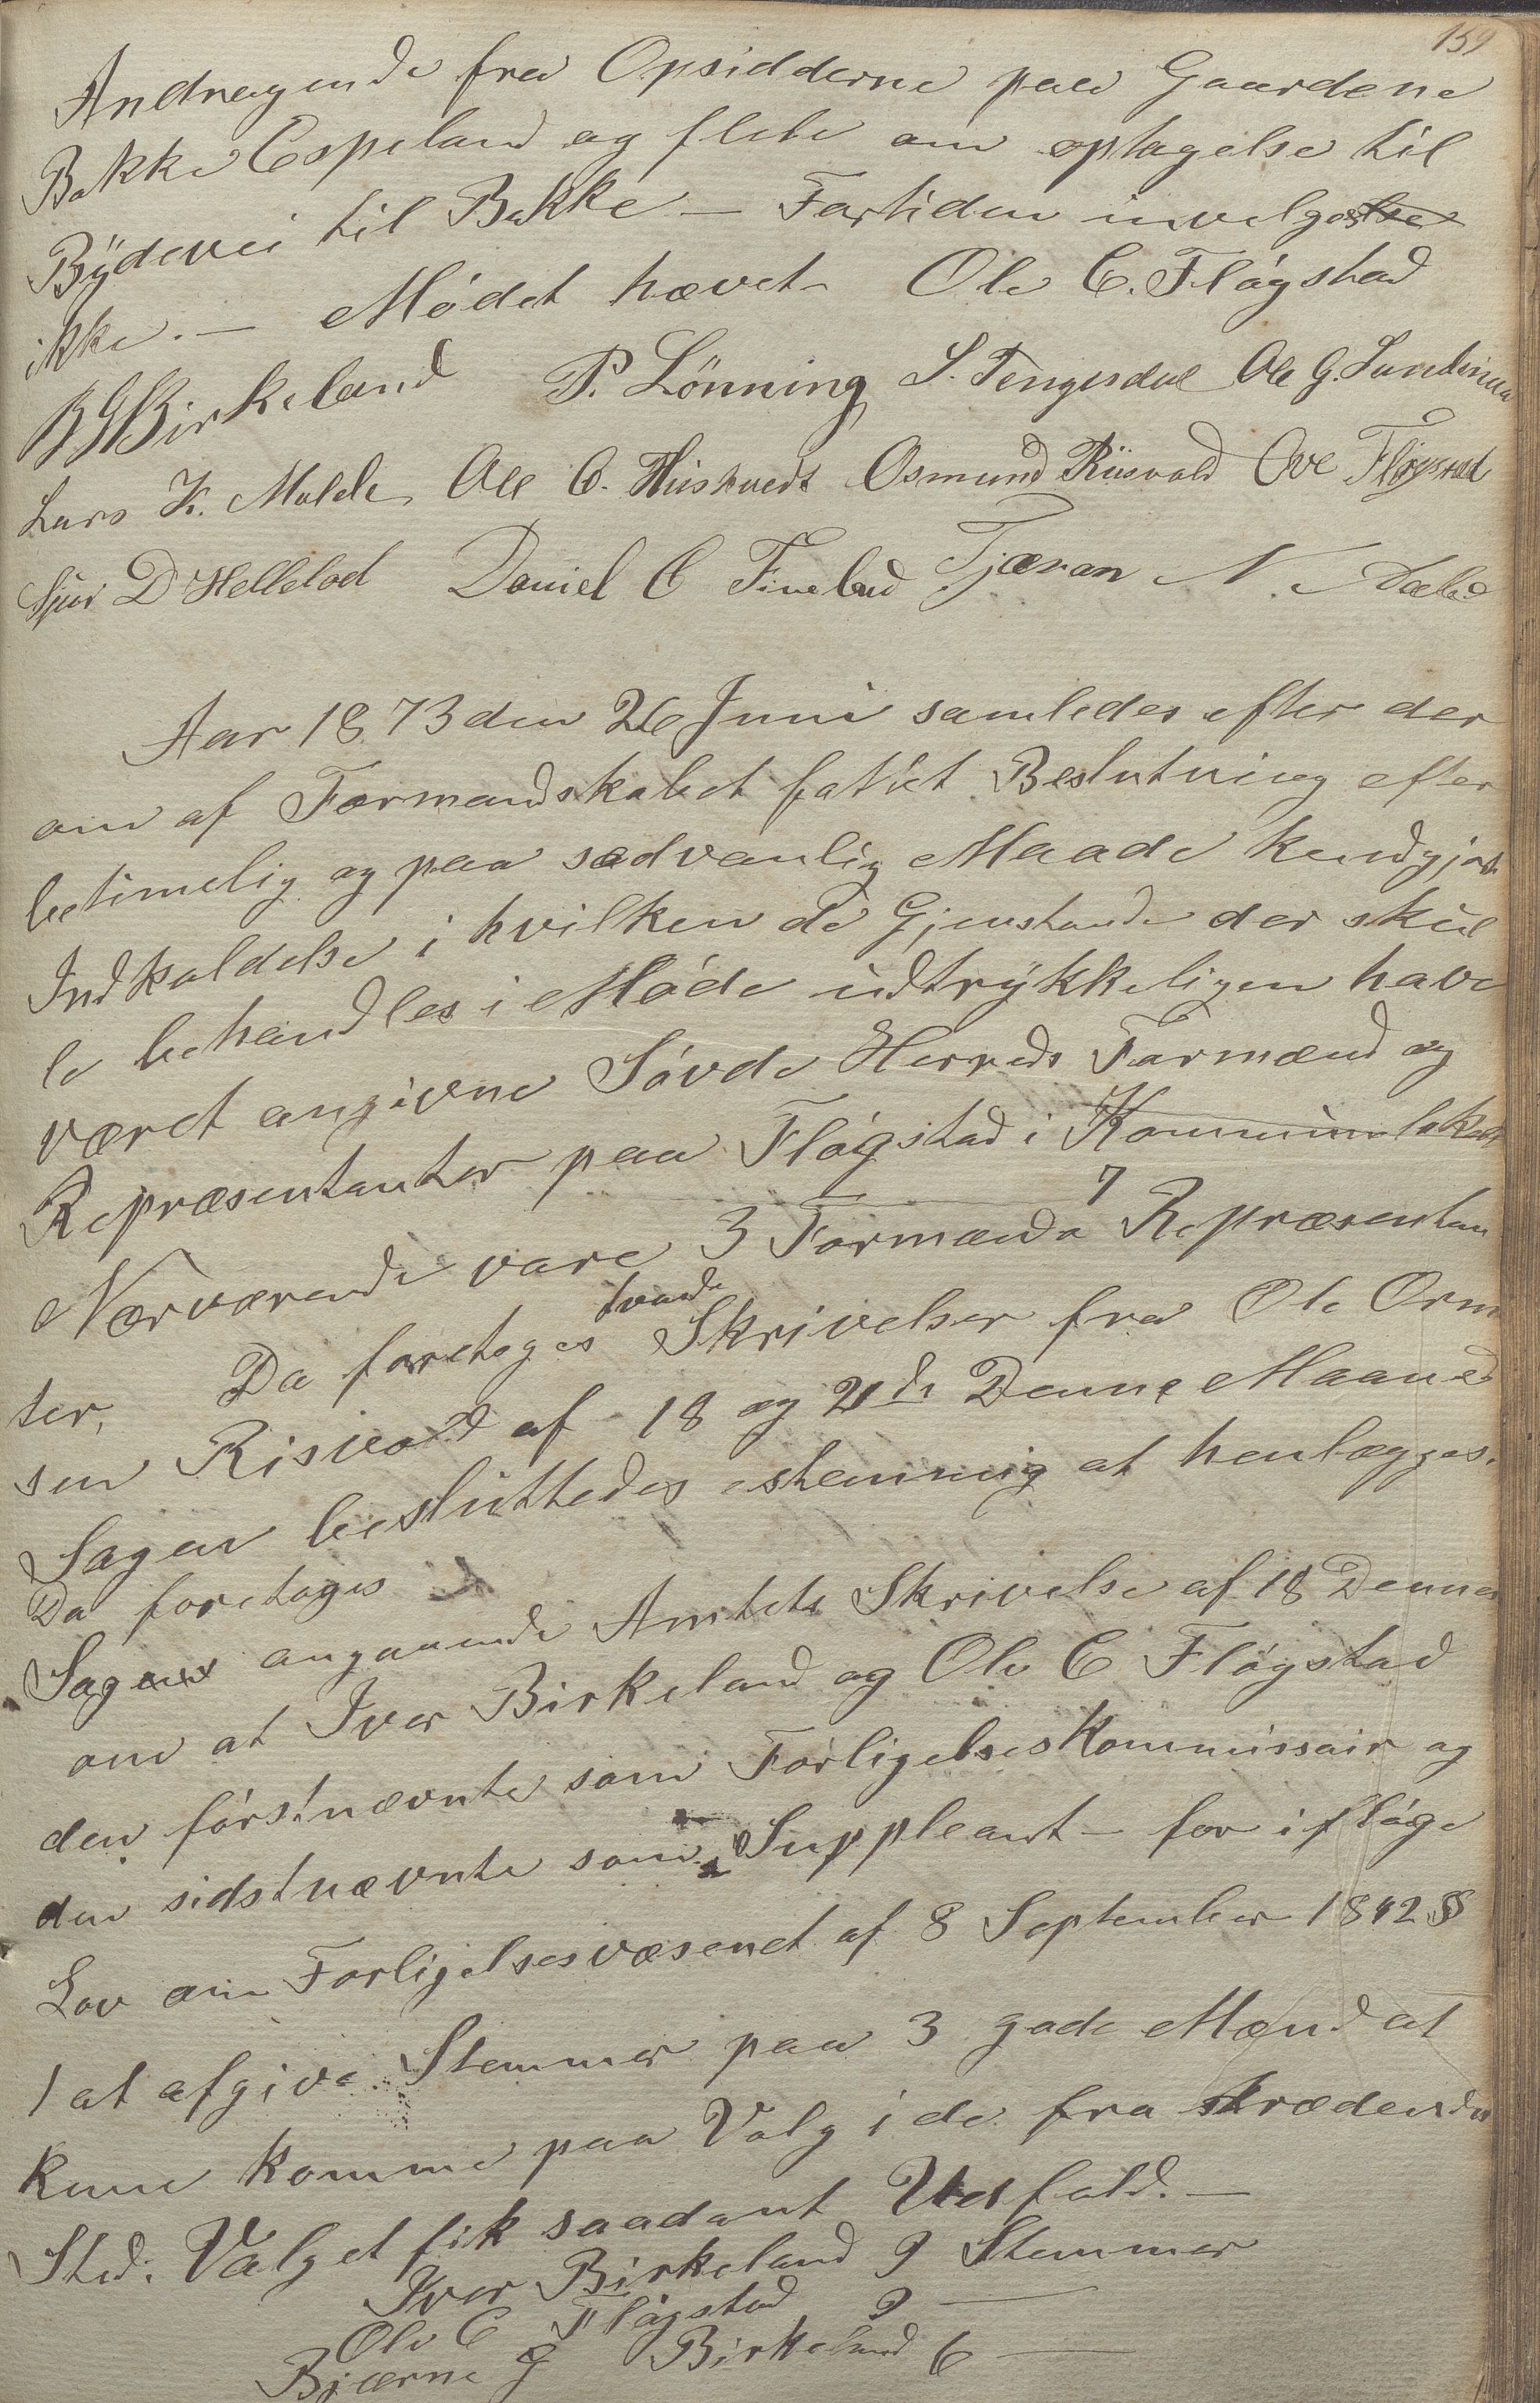 159
Andragende fra Opsidderne paa Gaardene
Bakke Espeland og flere om optagelse til
Bÿdevei til Bakke — Fortiden invelges
ikke. — Mödet hævet Ole C. Flögstad
B G Birkeland P. Lönning S. Tengesdal Ole G.
Lars K. Molde Ole C. Hiishuedt Osmund Riisvold Ove Fløgstad
Sjur D Helleland Daniel C Fineland Tjæran N.
Aar 1873 den 26 Juni samledes efter der
om af Formandskabet fattet Beslutning efter
betimelig og paa sædvanlig Maade kundgjort
Indkaldelse i hvilken de Gjenstande der skul
le behandles i Möde udtrÿkkeligen have
været angivne Sövde Herreds Formænd og
Repræsentanter paa Flögstad i Kommunelokale
Nærværende vare 3 Formænd 7 Repræsentan
ter, Da foretoges tvende Skrivelser fra Ole Orm
sen Risvold af 18 og 21de Denne Maaned
Sagen besluttedes estemmig at henlægges.
Da foretoges
Sagen angaaende Amtets Skrivelse af 18 Dennes
om at Iver Birkeland og Ole C Flögstad
den förstnævnte som Forligelseskommissair og
den sidstnævnte som Suppleant – for iflöge
Lov om Forligelsesvæsenet af 8 September 1842 §
1 at afgive Stemmer paa 3 gode Mænd at
kune komme paa Valg i de fra trædendes
Sted. Valget fik saadant Udfald. —
Iver Birkeland 9 Stemmer
Ole C Flögstad 9 —
Bjærne G Birkeland 6 —